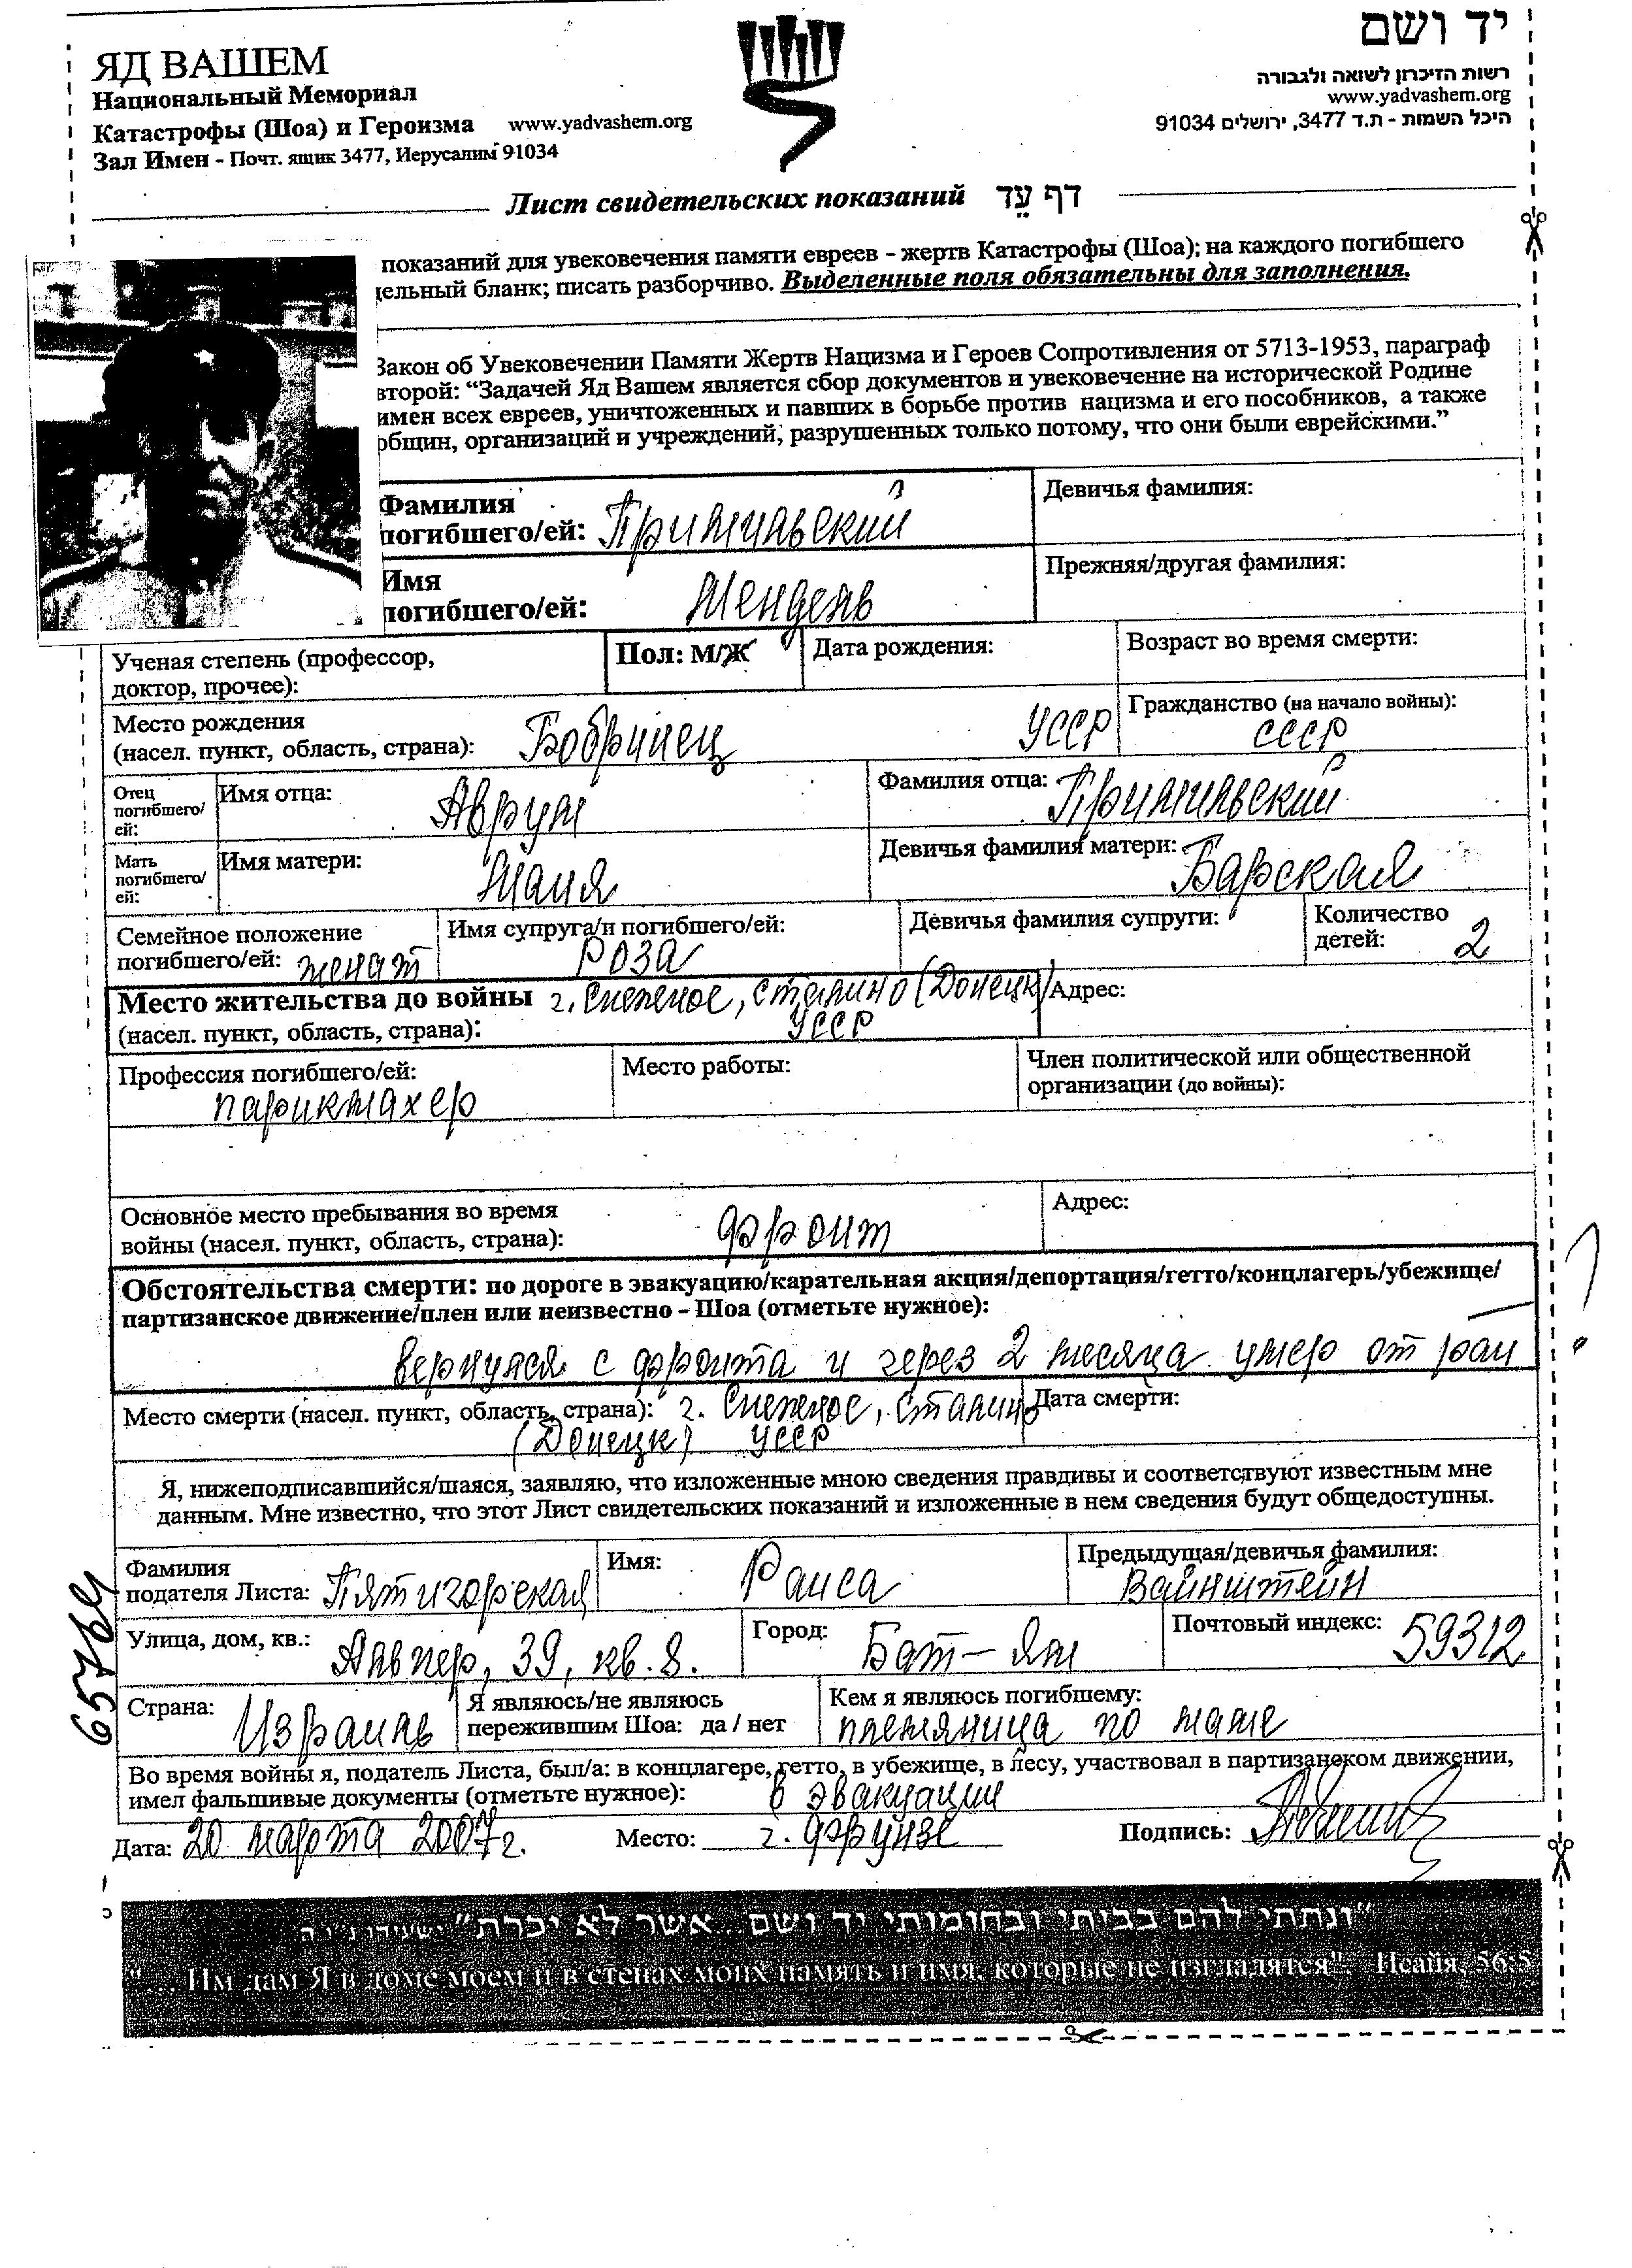 ЯД ВАШЕМ
Национальный Мемориал
Катастрофы (Шоа) и Героизма www.yadvashem.org
Зал Имен - Почт. ящик 3477, Иерусалим 91034
יד ושם
רשות הזיכרון לשואה ולגבורה
www.yadvashem.org
היכל השמות - ת.ד 3477, ירושלים 91034
Лист свидетельских показаний דף עֵד
показаний для увековечения памяти евреев - жертв Катастрофы (Шоа); на каждого погибшего
дельный бланк; писать разборчиво. Выделенные поля обязательны для заполнения.
Закон об Увековечении Памяти Жертв Нацизма и Героев Сопротивления от 5713-1953, параграф
второй: “Задачей Яд Вашем является сбор документов и увековечение на исторической Родине
имен всех евреев, уничтоженных и павших в борьбе против нацизма и его пособников, а также
общин, организаций и учреждений, разрушенных только потому, что они были еврейскими.”
Фамилия погибшего/ей: Примильский
Девичья фамилия:
Имя погибшего/ей: Мендель
Прежняя/другая фамилия:
Ученая степень (профессор, доктор, прочее):
Пол: М/Ж
Дата рождения:
Возраст во время смерти:
Место рождения (насел. пункт, область, страна): Бобринец УССР
Гражданство (на начало войны): СССР
Отец погибшего/ей:
Имя отца: Аврум
Фамилия отца: Примильский
Мать погибшего/ей:
Имя матери: Маня
Девичья фамилия матери: Барская
Семейное положение погибшего/ей: женат
Имя супруга/и погибшего/ей: Роза
Девичья фамилия супруги:
Количество детей: 2
Место жительства до войны (насел. пункт, область, страна): г. Снежное, Сталино (Донецк) УССР
Адрес:
Профессия погибшего/ей: парикмахер
Место работы:
Член политической или общественной организации (до войны):
Основное место пребывания во время войны (насел. пункт, область, страна): фронт
Адрес:
Обстоятельства смерти: по дороге в эвакуацию/карательная акция/депортация/гетто/концлагерь/убежище/
партизанское движение/плен или неизвестно - Шоа (отметьте нужное):
вернулся с фронта и через 2 месяца умер от ран
Место смерти (насел. пункт, область, страна): г. Снежное, Сталино (Донецк) УССР
Дата смерти:
Я, нижеподписавшийся/шаяся, заявляю, что изложенные мною сведения правдивы и соответствуют известным мне
данным. Мне известно, что этот Лист свидетельских показаний и изложенные в нем сведения будут общедоступны.
Фамилия подателя Листа: Пятигорская
Имя: Раиса
Предыдущая/девичья фамилия: Вайнштейн
Улица, дом, кв.: 39, кв. 8.
Город: Бат-Ям
Почтовый индекс: 59312
Страна: Израиль
Я являюсь/не являюсь пережившим Шоа: да / нет
Кем я являюсь погибшему: племяница по маме
Во время войны я, податель Листа, был/а: в концлагере, гетто, в убежище, в лесу, участвовал в партизанском движении,
имел фальшивые документы (отметьте нужное): в эвакуации
Дата: 20 марта 2007 г. Место: г. Фрунзе Подпись:
65764
"ונתתי להם בביתי ובחומותי יד ושם...אשר לא יכרת" ישעיהו נ"ו ה
"... Им дам Я в доме моем и в стенах моих память и имя, которые не изгладятся". Исайя, 56:5